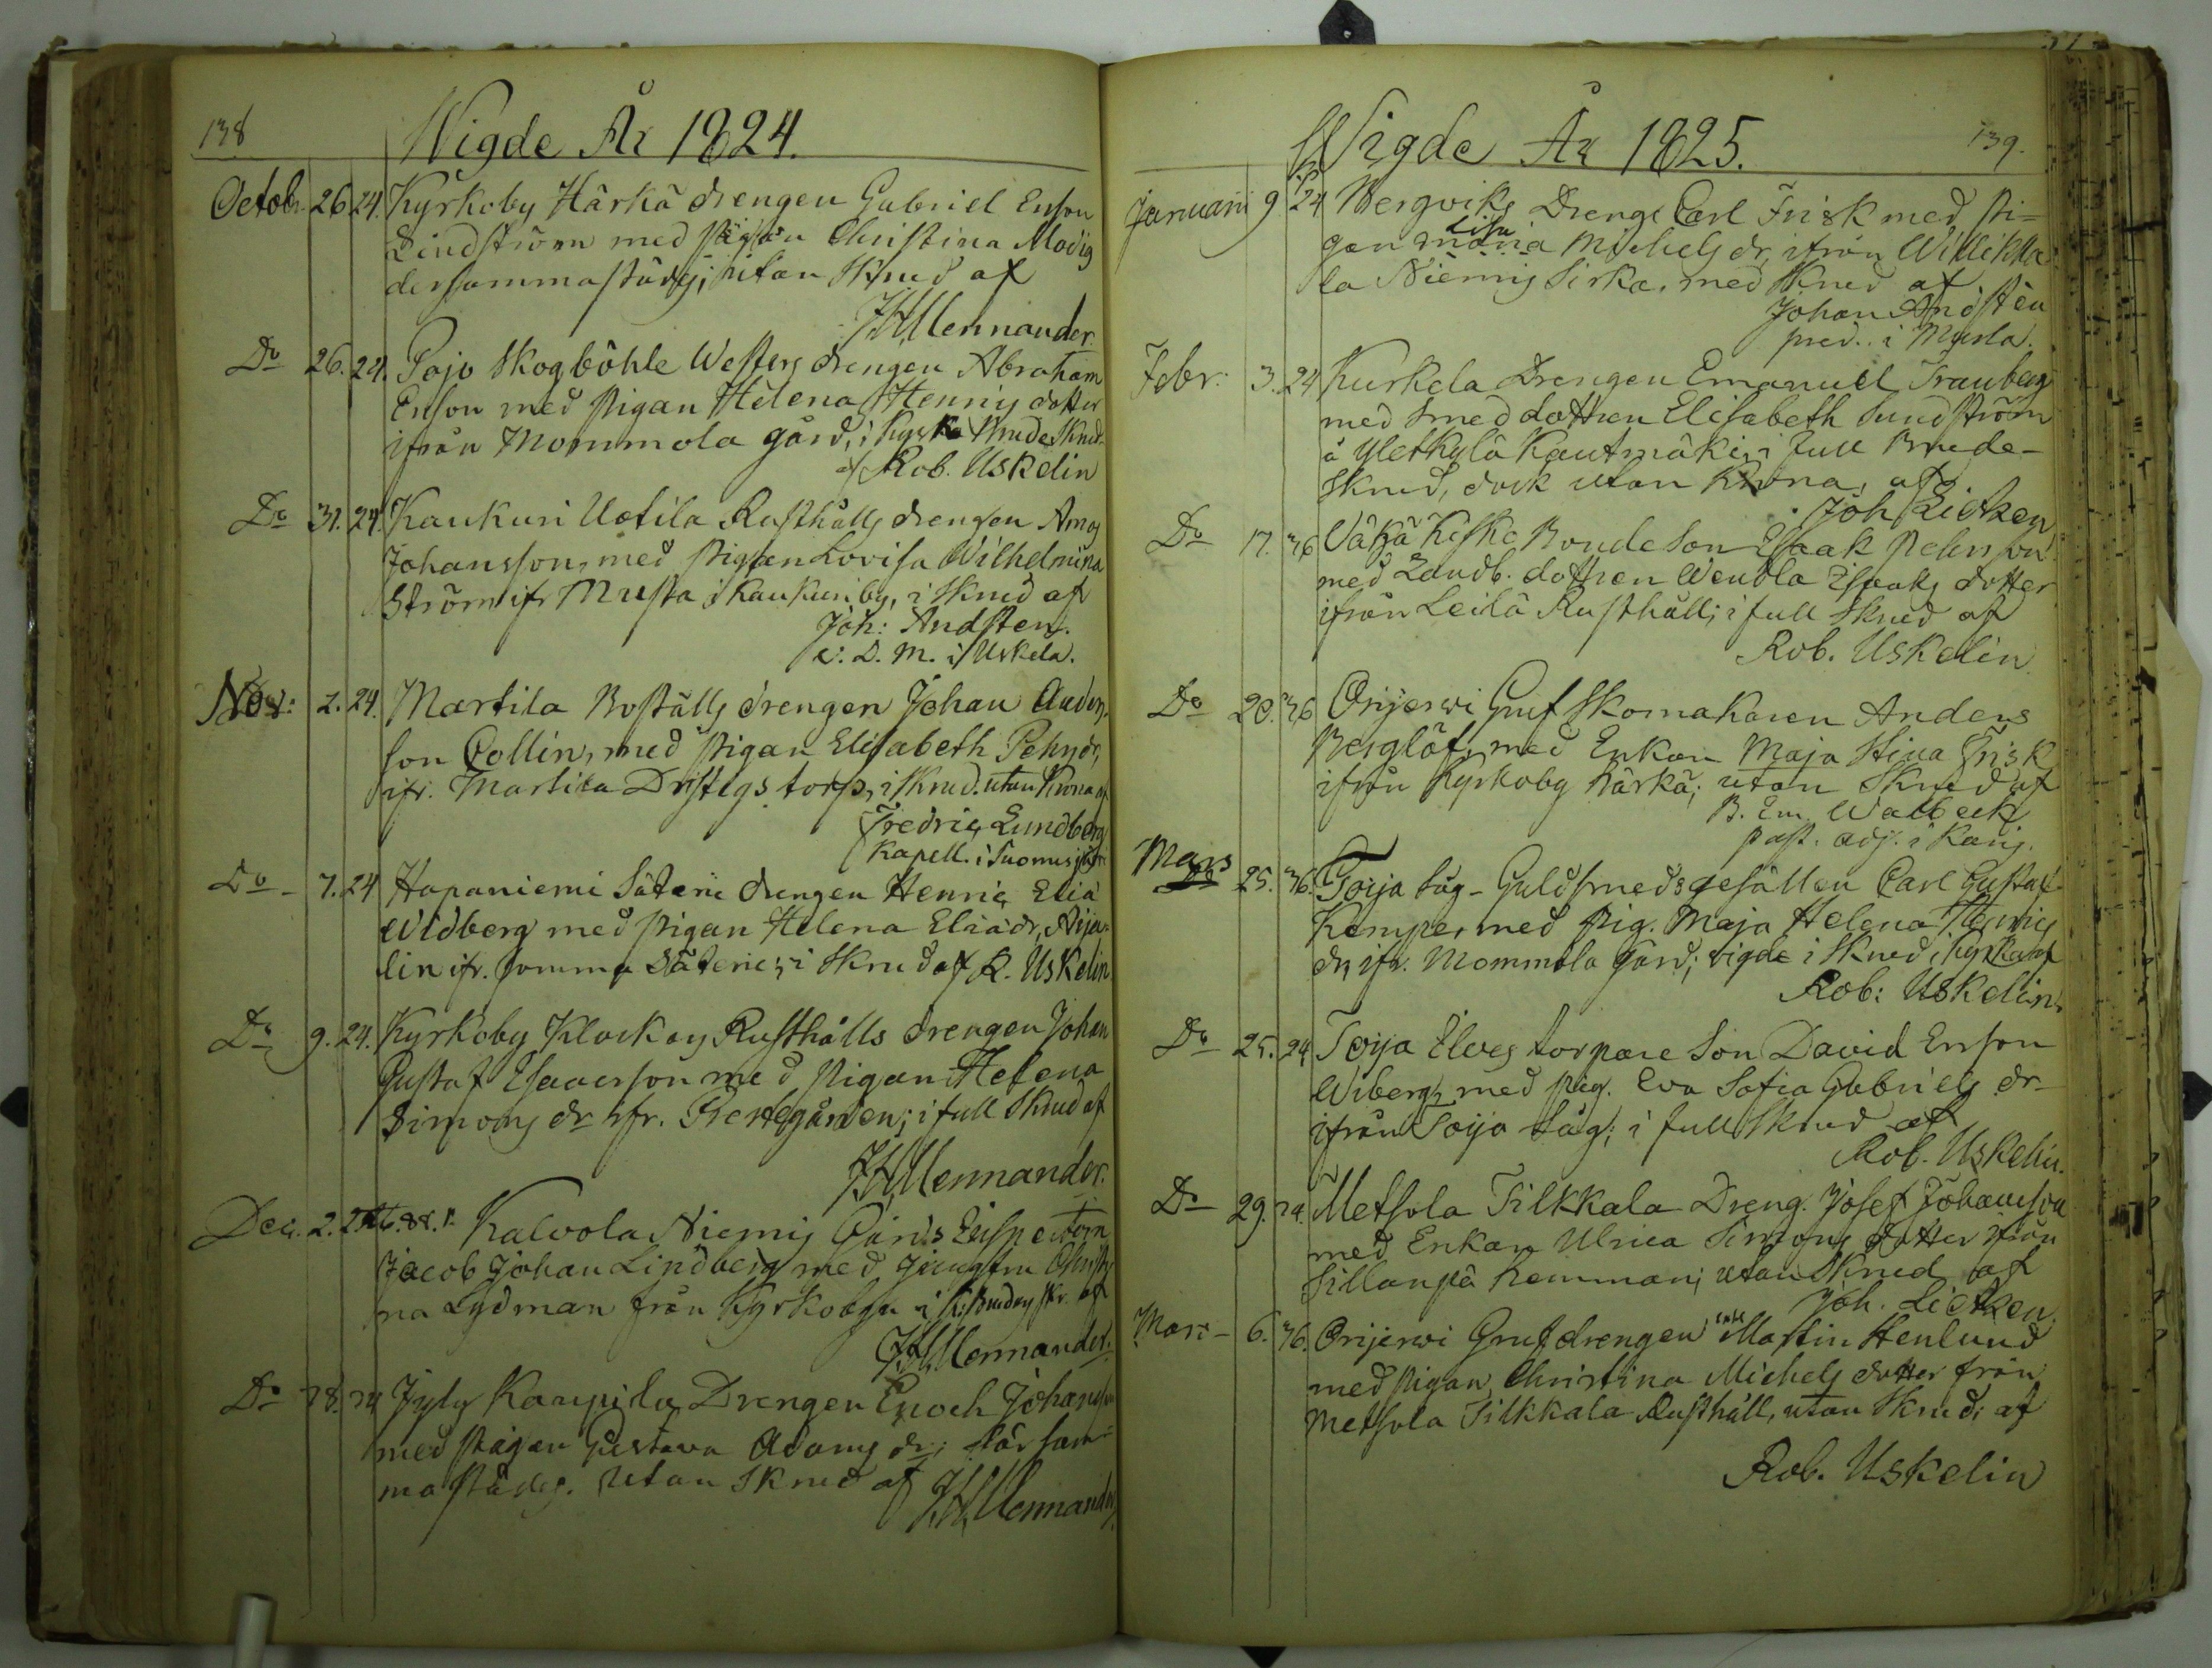 138
Wigde År 1824.
Octob. 26. 24. Kyrkoby Härkä drengen Gabriel Ersson
Lindström med pigan Christina Modig
dersammastädes; utan Skrud af
J.H. Mennander.
Do 26. 24. Pojo Skogböhle Westers drengen Abraham
Ersson med Pigan Helena Henrics dotter
ifrån Mommola gård, i Kyrko Brude Skrud
af Rob. Uskelin
Do 31. 24. Kaukuri Uotila Rusthålls drengen Amos
Johansson, med Pigan Lovisa Wilhelmina
Ström ifr Musta i Kaukuri by, i Skrud af
Joh: Andsten.
v. D. M. i Uskela.
Nov: 2. 24. Martila Boställs drengen Johan Anders-
son Collin, med Pigan Elisabeth Pehrs dr,
ifr. Martila torp, i Skrud. utan Krona af
Fredric Lundberg
Kapell. i Suomusjärvi
Do - 7. 24 Hapaniemi Säteri drengen Henric Elia
Widberg med Pigan Helena Eliæ dr,
lin ifr. samma Säterie; i Skrud af R. Uskelin
Do 9. 24. Kyrkoby Klockars Rusthålls drengen Johan
Gustaf Esaiasson med Pigan Helena
Simons dr ifr. Prestegården; i full Skrud af
J.H. Mennander.
Dec. 2. Kalvola Niemis Gårds Inspectorn
Jacob Johan Lindberg med Jungfru Christi-
na Lydman från Kyrkobyn i K: Brudeskr. af
J.H. Mennander.
Do 28. 24 Jyly Kaupila Drengen Enoch Johansson
med Pigan Gustava Adams dr; därsam-
mastädes. Utan Skrud af J.H. Mennander,
Wigde År 1825.
139.
Januarii 9 24 Bergviks Dreng Carl Frisk med Pi-
Lisa
gan Maria Michels dr, ifrån Willikka-
la Niemis Sirka. med Skrud af
Johan Andstén
pred. i Muurla.
Febr: 3. 24 Kurkela Drengen Emanuel Trauberg
med Smed dottren Elisabeth Sundström
å Ylethylä Kautmäki; i full Brude-
Skrud, dock utan Krona, af
Joh Lietzen
Do 17. 36 Wähä Kiske Bonde Son Esaak Pehrsson
med Landb. dottren Wendla Esaaks dotter
ifrån Leilä Rusthåll; i full Skrud af
Rob. Uskelin
Do 20. 36 Orijerwi Gruf Skomakaren Anders
Berglöf, med Enkan Maja Stina Frisk
ifrån Kyrkoby Härkä; utan Skrud af
B. Em. Walbeck
past. adj. i Karis.
Mars
Do 25. 36. Toija Såg-Guldsmedsgesällen Carl Gustaf
Kempe, med Pig. Maja Helena Henrics
dr, ifr. Mommola Gård; vigde i Skrud, i kyrkan af
Rob: Uskelin.
Do 25. 24 Toija Elvers torpare Son David Ersson
Wiberg, med Pig. Eva Sofia Gabriels dr-
ifrån Toija Såg; i full Skrud af
Rob. Uskelin.
Do 29. 24. Metsola Tilkkala Dreng. Josef Johansson
med Enkan Ulrica Simons dotter ifrån
Sillanpä hemman; utan Skrud af
Joh. Lietzen.
Mars - 6. 36. Orijerwi Gruf drengen Martin Stenlund
med Pigan Christina Michels dotter från
Metsola Tilkkala Rusthåll, utan Skrud; af
Rob. Uskelin